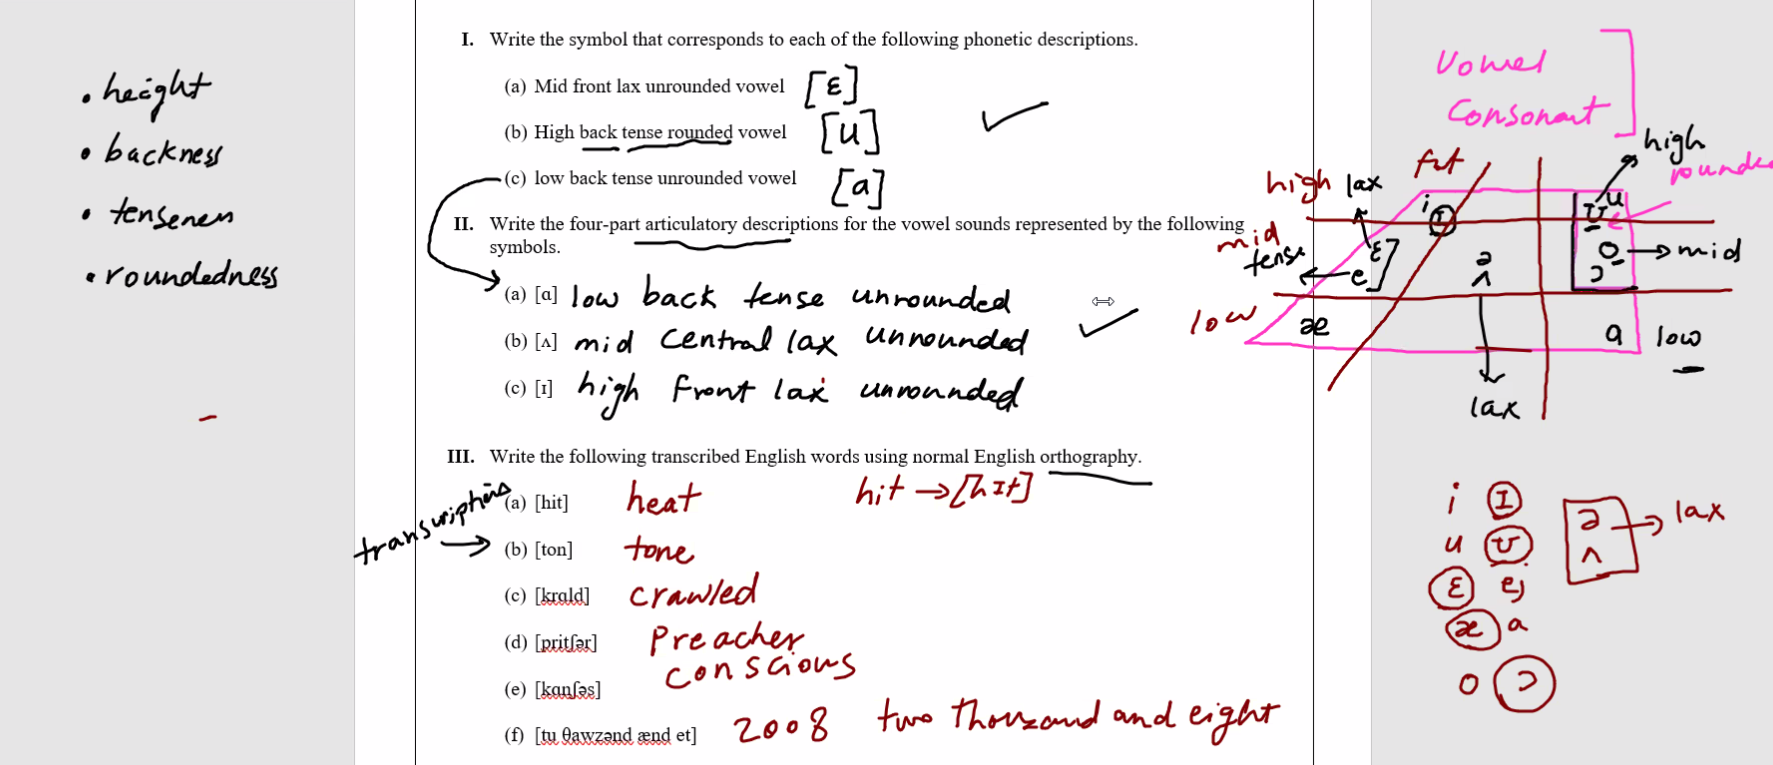 • height
• backness
• tenseness
• roundedness
I. Write the symbol that corresponds to each of the following phonetic descriptions.
(a) Mid front lax unrounded vowel [ɛ]
(b) High back tense rounded vowel [u]
(c) low back tense unrounded vowel [a]
II. Write the four-part articulatory descriptions for the vowel sounds represented by the following
symbols.
(a) [ɑ] low back tense unrounded
(b) [ʌ] mid central lax unrounded
(c) [ɪ] high front lax unrounded
III. Write the following transcribed English words using normal English orthography.
transcriptions
(a) [hit] heat hit → [hɪt]
(b) [ton] tone
(c) [krɑld] crawled
(d) [pritʃər] Preacher
(e) [kɑnʃəs] conscious
(f) [tu θawzənd ænd et] 2008 two thouzand and eight
Vowel
Consonant
high
rounded
high lax
i ɪ
u
ʊ
mid
tense
ɛ
e
ə
ʌ
o → mid
ɔ
low
æ
a low
lax
i ɪ
u ʊ
ɛ ej
æ a
o ɔ
ə → lax
ʌ